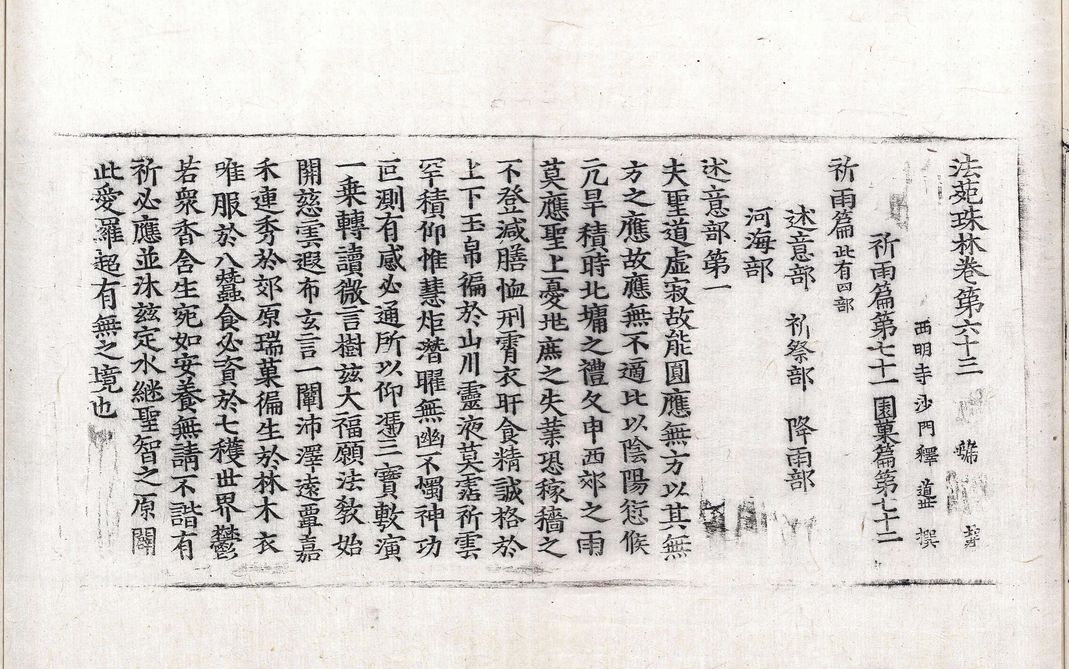 法苑珠林卷第六十三
西明寺沙門釋道世撰
祈雨篇第七十一 園菓篇第七十二
祈雨篇 此有四部
述意部 祈祭部 降雨部
河海部
述意部第一
夫聖道虛寂故能圓應無方以其無
方之應故應無不適比以陰陽愆候
亢旱積時北墉之禮久申西郊之雨
莫應聖上憂地庶之失業恐稼穡之
不登減膳恤刑霄衣旰食精誠格於
上下玉帛徧於山川靈液莫霑祈雲
罕積仰惟慧炬潛曜無幽不燭神功
叵測有感必通所以仰馮三寶敷演
一乘轉讀微言樹玆大福願法教始
開慈雲遐布玄言一闡沛澤遠覃嘉
禾連秀於郊原瑞菓徧生於林木衣
唯服於八蠶食必資於七穫世界鬱
若衆香含生宛如安養無請不諧有
祈必應並沐玆定水継聖智之原闢
此愛羅超有無之境也